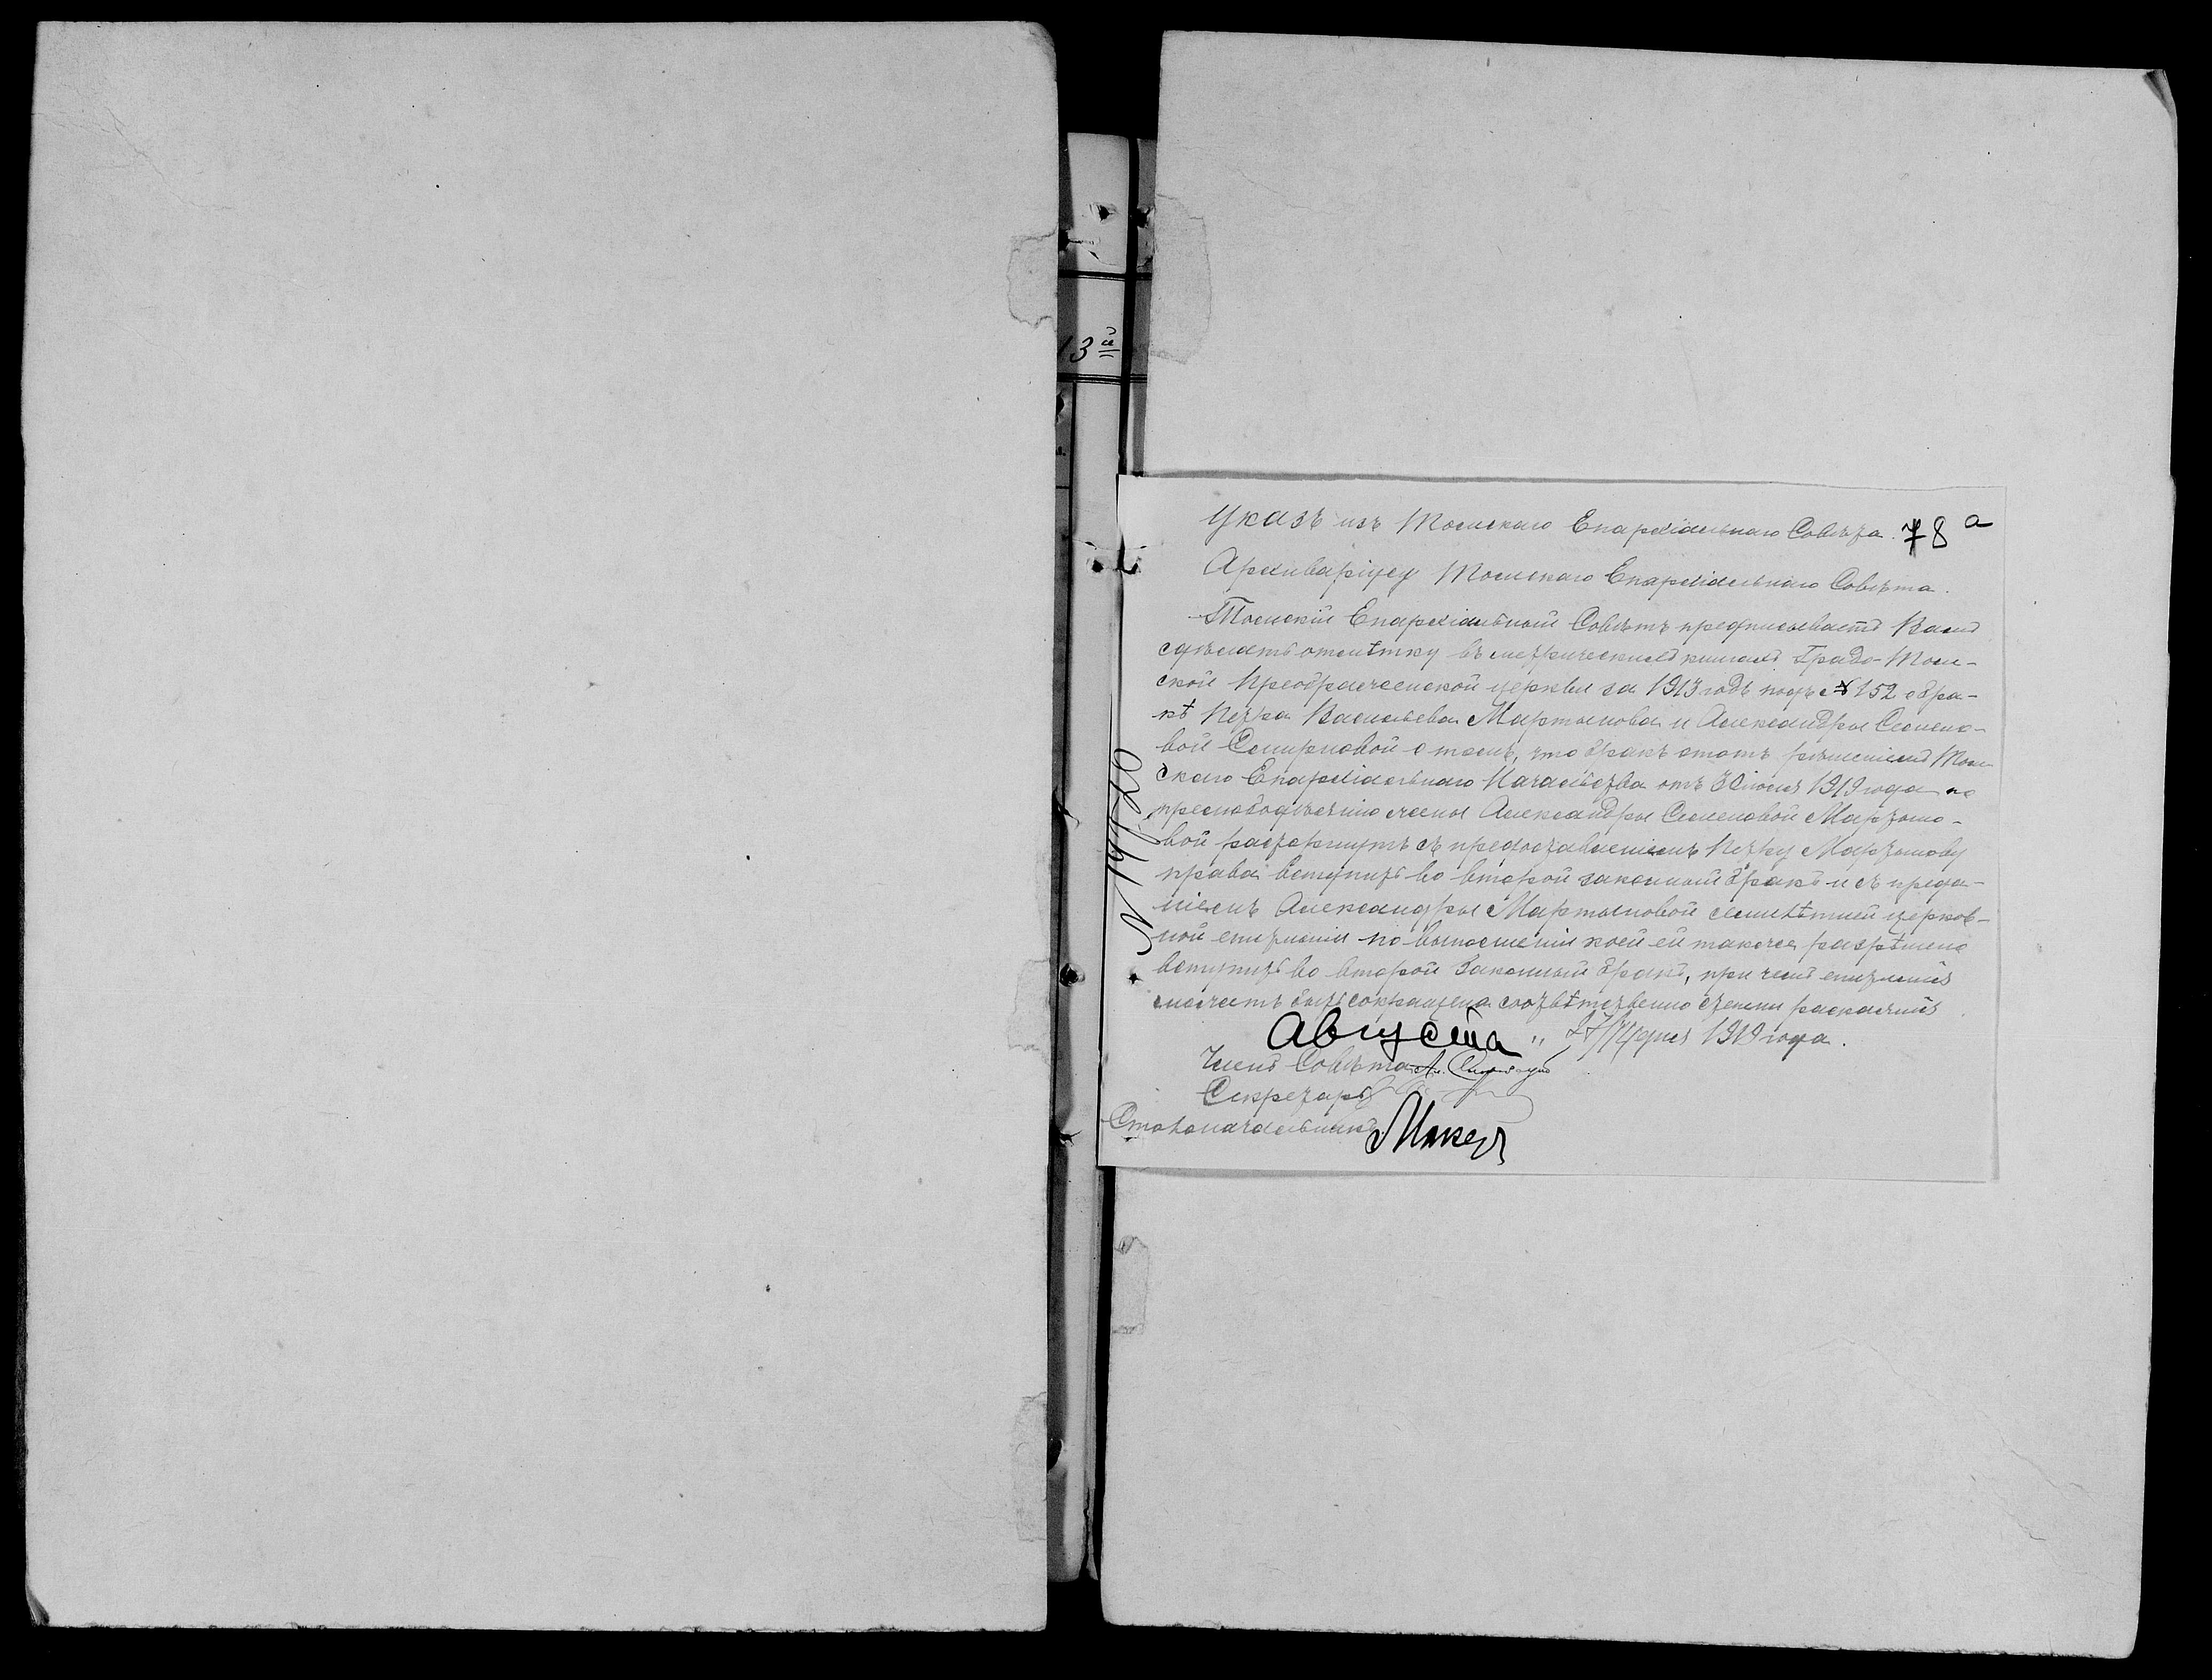 13й
Указъ изъ Томскаго Епархіальнаго Совѣта. 78а
Архиваріусу Томскаго Епархіальнаго Совѣта.
Томскій Епархіальный Совѣтъ предписываетъ Вамъ
сдѣлать отмѣтку въ метрическихъ книгахъ Градо-Том-
ской Преображенской церкви за 1913 годъ подъ № 152 о бра-
кѣ Петра Васильева Мартынова и Александры Семено-
вой Смирновой о томъ, что бракъ этотъ рѣшеніемъ Том-
скаго Епархіальнаго Начальства отъ іюля 1919 года по
прелюбодѣянію жены Александры Семеновой Мартыно-
вой расторгнутъ съ предоставленіемъ Петру Мартынову
права вступить во второй законный бракъ и съ преда-
ніемъ Александры Мартыновой семилѣтней церков-
ной епитиміи по выполненіи коей ей также разрѣшено
вступить во второй законный бракъ, при чемъ епитимія
можетъ быть сокращена соотвѣтственно степени раскаянія
Августа " 27/14 дня 1919 года.
Членъ Совѣта
Секретарь
Столоначальникъ
N 19720